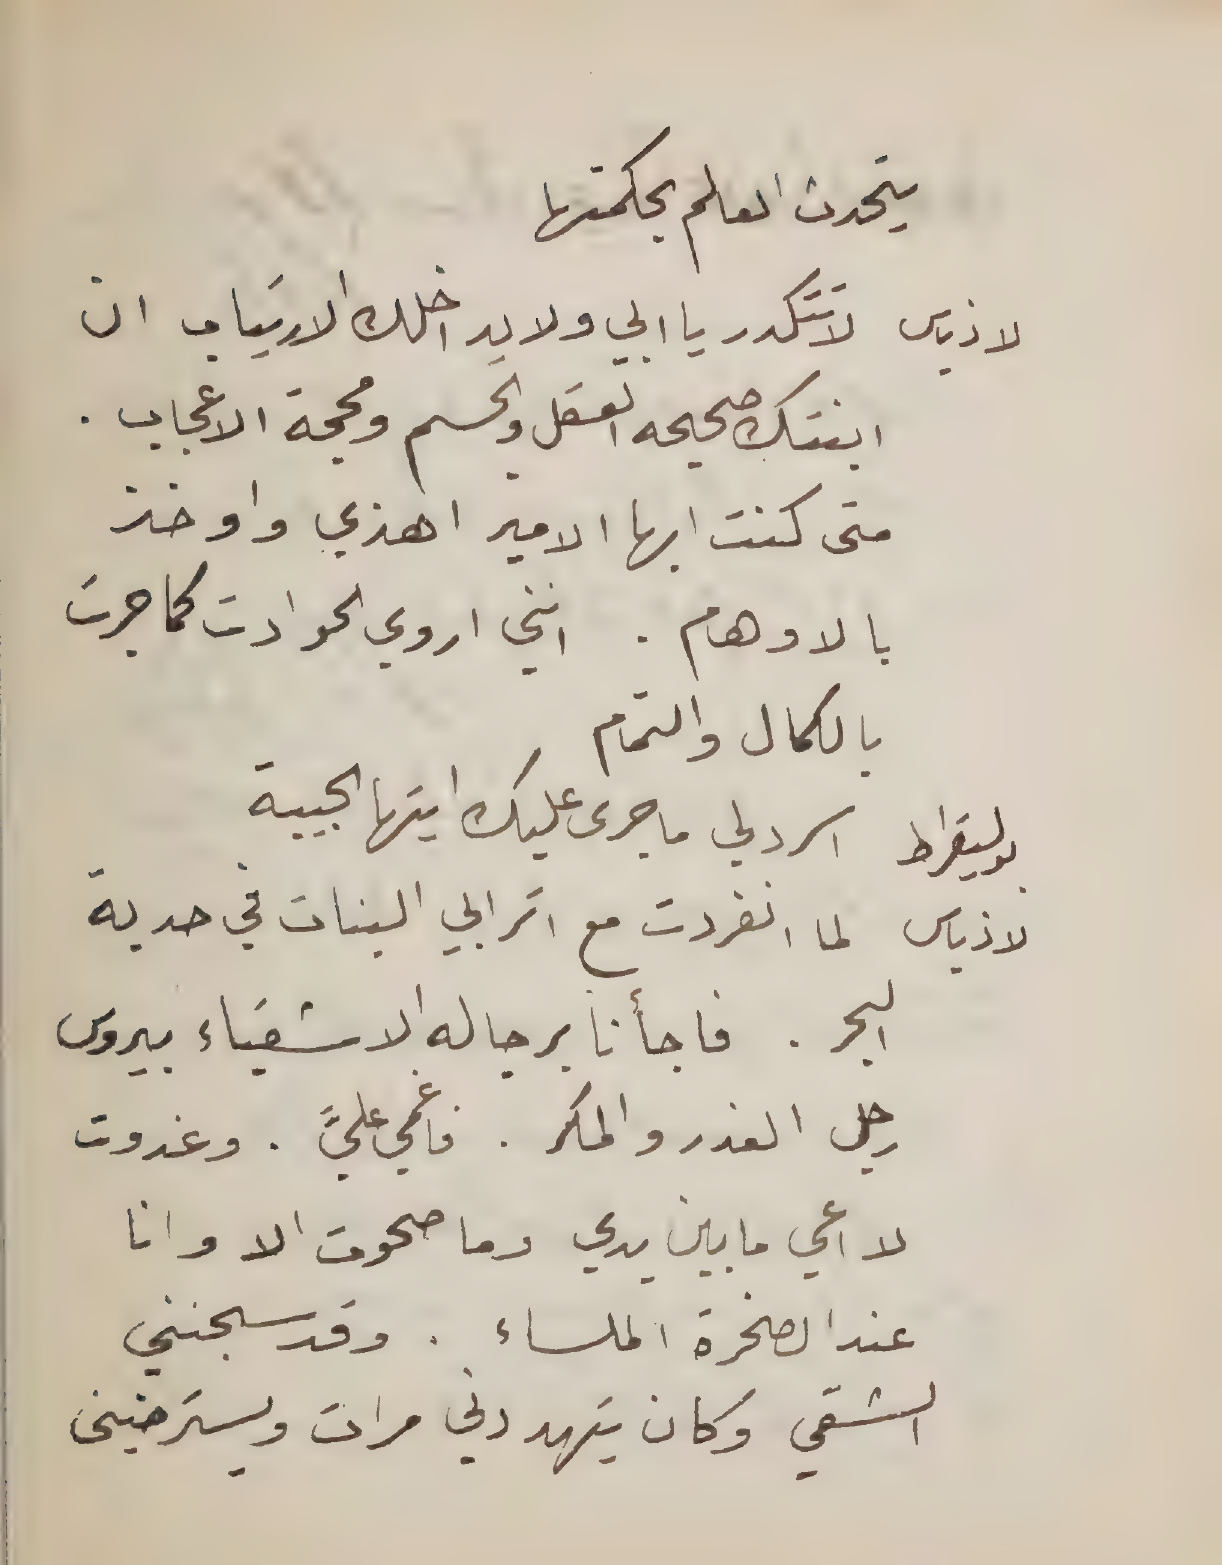 يتحدث العالم بحكمتها
لاذياس لا تتكدر يا ابي ولا يداخلك الارتياب ان
ابنتك صحيحه العقل والجسم ومحجة الاعجاب .
متى كنت ايها الامير اهذي واوخذ
بالاوهام . انني اروي الحوادت كما جرت
بالكمال والتمام
بوليقراط اسرد لي ما جرى عليك ايتها الحبيبة
لاذياس لما انفردت مع اترابي البنات في حدية
البحر . فاجأنا برجاله الاشقياء بيروس
رجل الغدر والمكر . فاغمي عليَّ . وغدوت
لا اعي ما بين يدي وما صحوت الا وانا
عند الصخرة الملساء . وقد سجنني
الشقي وكان يتهددني مرات ويسترضيني